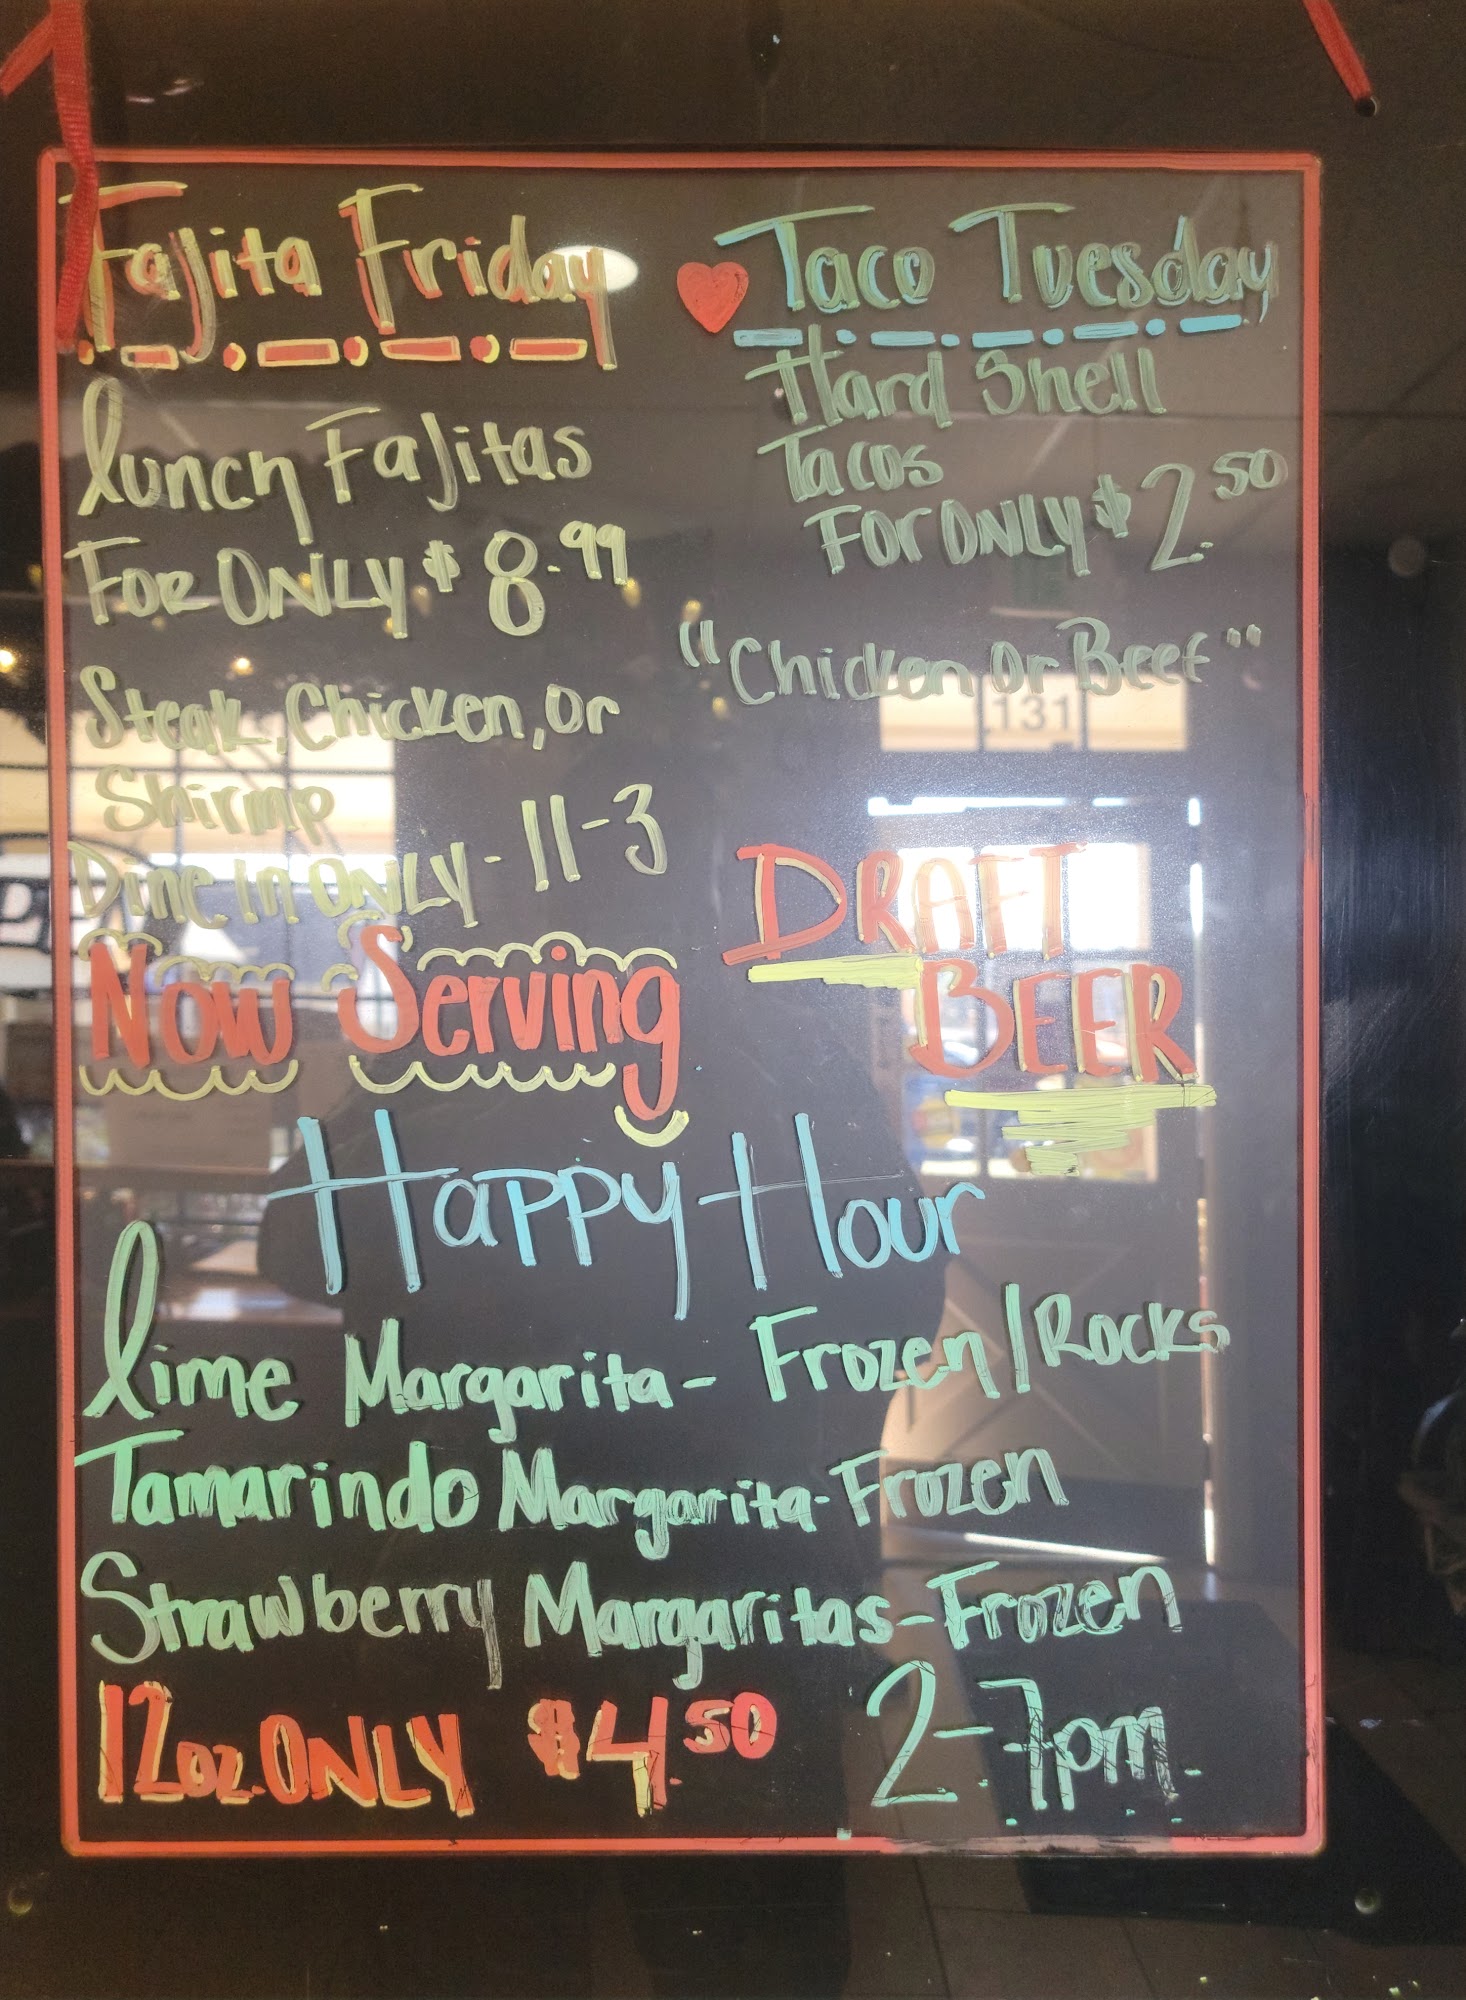 Fajita Friday
lunch Fajitas
For ONLY $8.99
Steak, Chicken, Or
Shirmp
Dine In ONLY - 11-3
Taco Tuesday
Hard Shell
Tacos
For ONLY $2.50
"Chicken Or Beef"
131
Now Serving
DRAFT
BEER
Happy Hour
lime Margarita - Frozen/Rocks
Tamarindo Margarita - Frozen
Strawberry Margaritas - Frozen
12oz. ONLY $4.50 2-7pm.